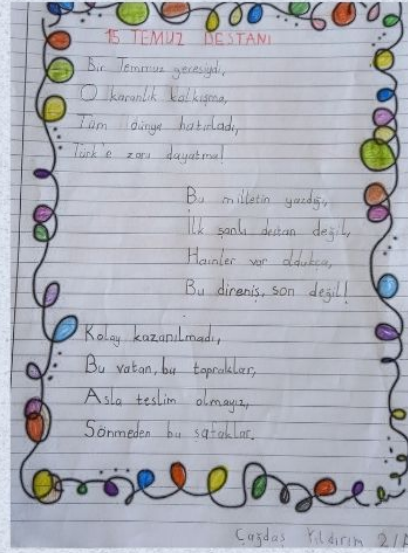 15 TEMUZ DESTANI
Bir Temmuz gecesiydi,
O karanlık kalkışma,
Tüm dünya hatırladı,
Türk'e zoru dayatma!
Bu milletin yazdığı,
İlk şanlı destan değil,
Hainler var oldukça,
Bu direniş, son değil!
Kolay kazanılmadı,
Bu vatan, bu topraklar,
Asla teslim olmayız,
Sönmeden bu şafaklar.
Çağdaş Yıldırım 2/